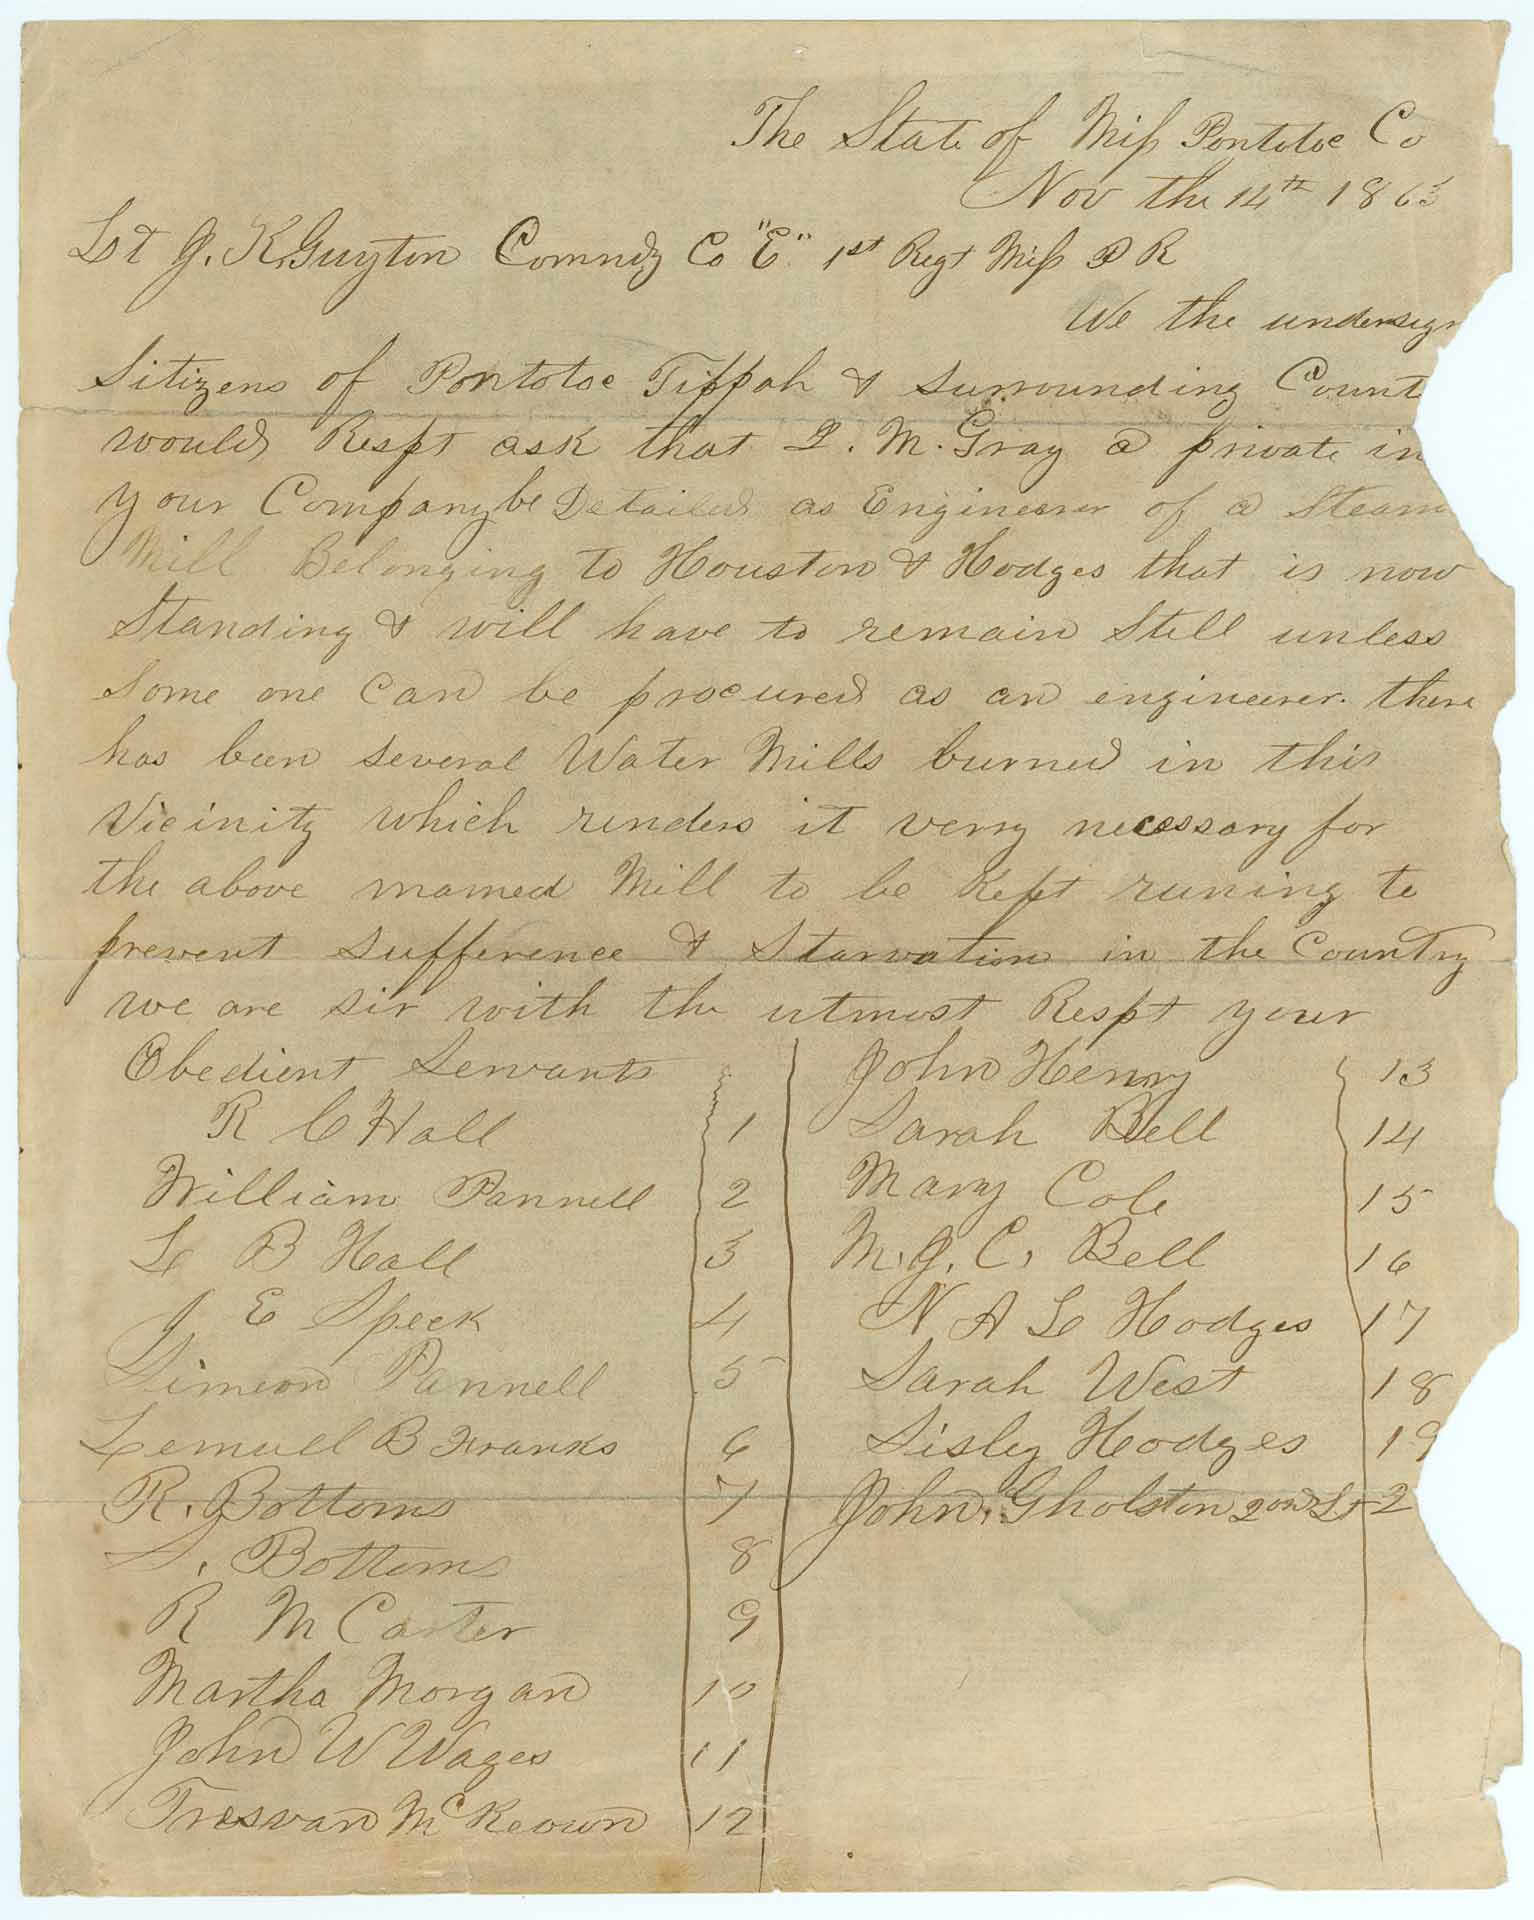 The State of Miss Pontotoc Co
Nov the 14th 1863
Lst J. K Guyton Commdg Co "E" 1st Regt Miss P R
We the undersign
Sitizens of Pontotoc Tippah & surrounding Count
would Respt ask that L. M. Gray a private in
your Company be Detailed as Engineerer of a Steam
Mill Belonging to Houston & Hodges that is now
Standing & will have to remain Still unless
some one can be procured as an engineerer. there
has been several Water Mills burned in this
Vicinity which renders it verry necessary for
the above named Mill to be kept runing to
prevent sufference & Starvation in the Country
we are sir with the utmost Respt your
Obedient Servants
R C Hall 1
William Pannell 2
L B Hall 3
J E Speck 4
Simeon Pannell 5
Lemuel B Franks 6
R. Bottoms 7
S. Bottoms 8
R M Carter 9
Martha Morgan 10
John W Wages 11
Tresvan McKeown 12
John Henry 13
Sarah Bell 14
Mary Cole 15
M. J. C. Bell 16
N A L Hodges 17
Sarah West 18
Sisley Hodges 19
John, Gholston 2ond Lt 2